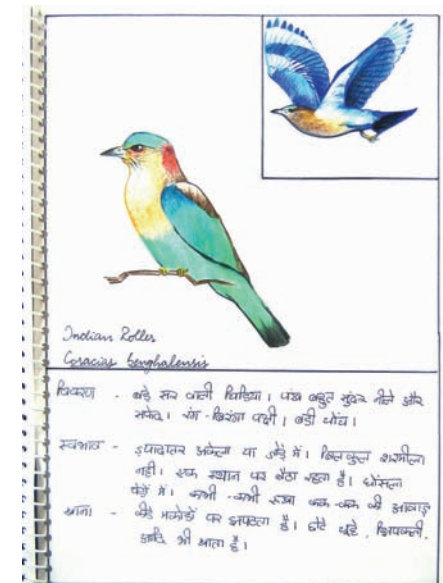 Indian Roller
Coracias benghalensis
विवरण - बड़े सर वाली चिड़िया। पंख बहुत सुंदर नीले और
सफेद। रंग-बिरंगा पक्षी। बड़ी चोंच।
स्वभाव - ज़्यादातर अकेला या जोड़े में। बिलकुल शरमीला
नहीं। एक स्थान पर बैठा रहता है। घोंसला
पेड़ों में। कभी-कभी रूखा चक-चक की आवाज़
खाना - कीड़े मकोड़ों पर झपटता है। छोटे चूहे, छिपकली,
आदि भी खाता है।